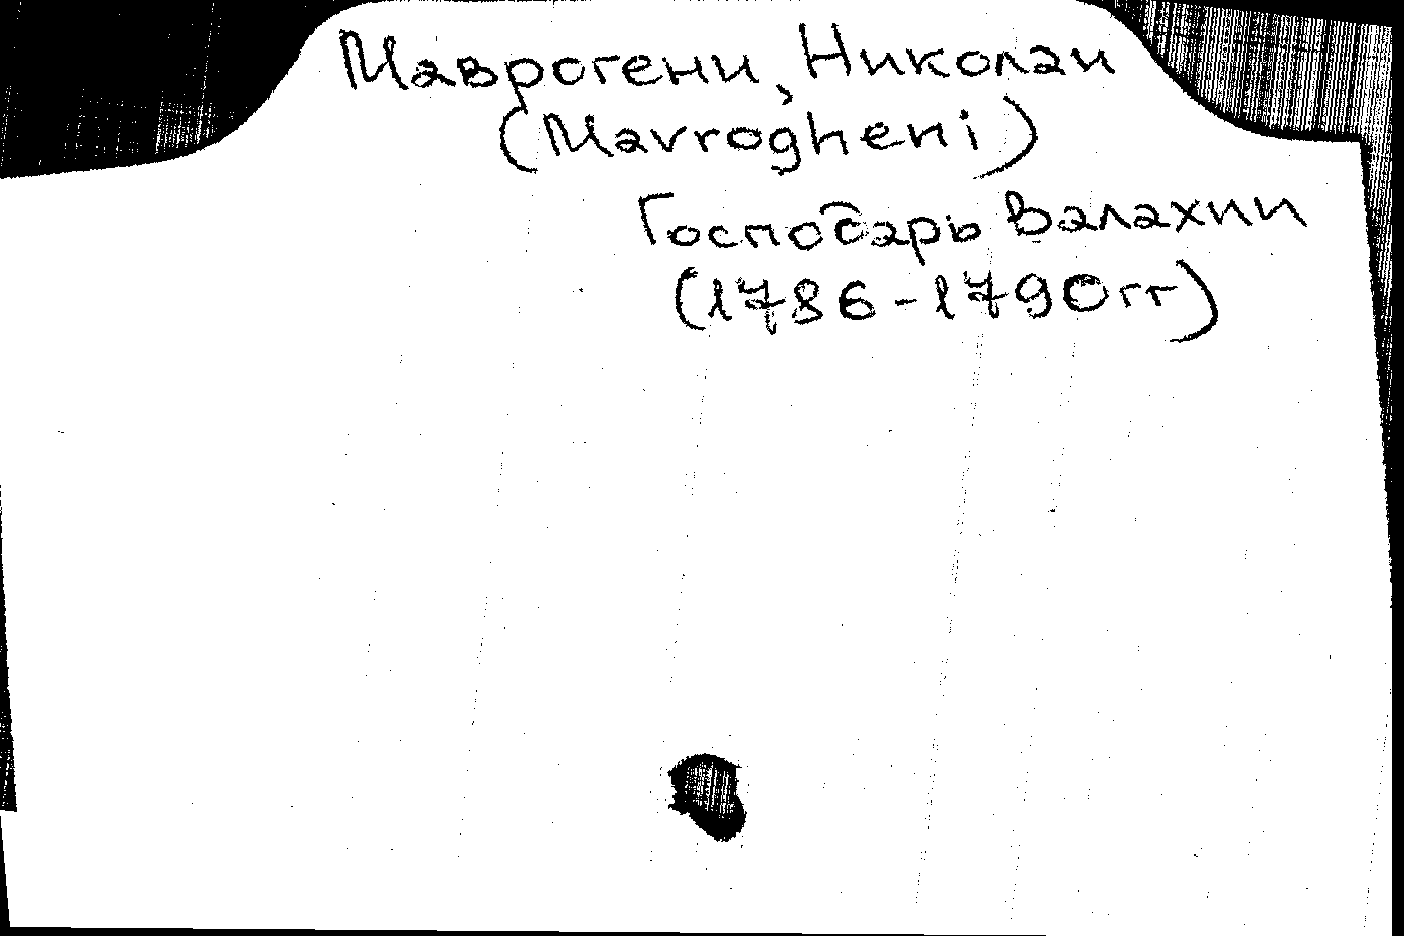 Маврогени, Николаи
(Mavrogheni)
Господарь Валахии
(1786-1790гг)